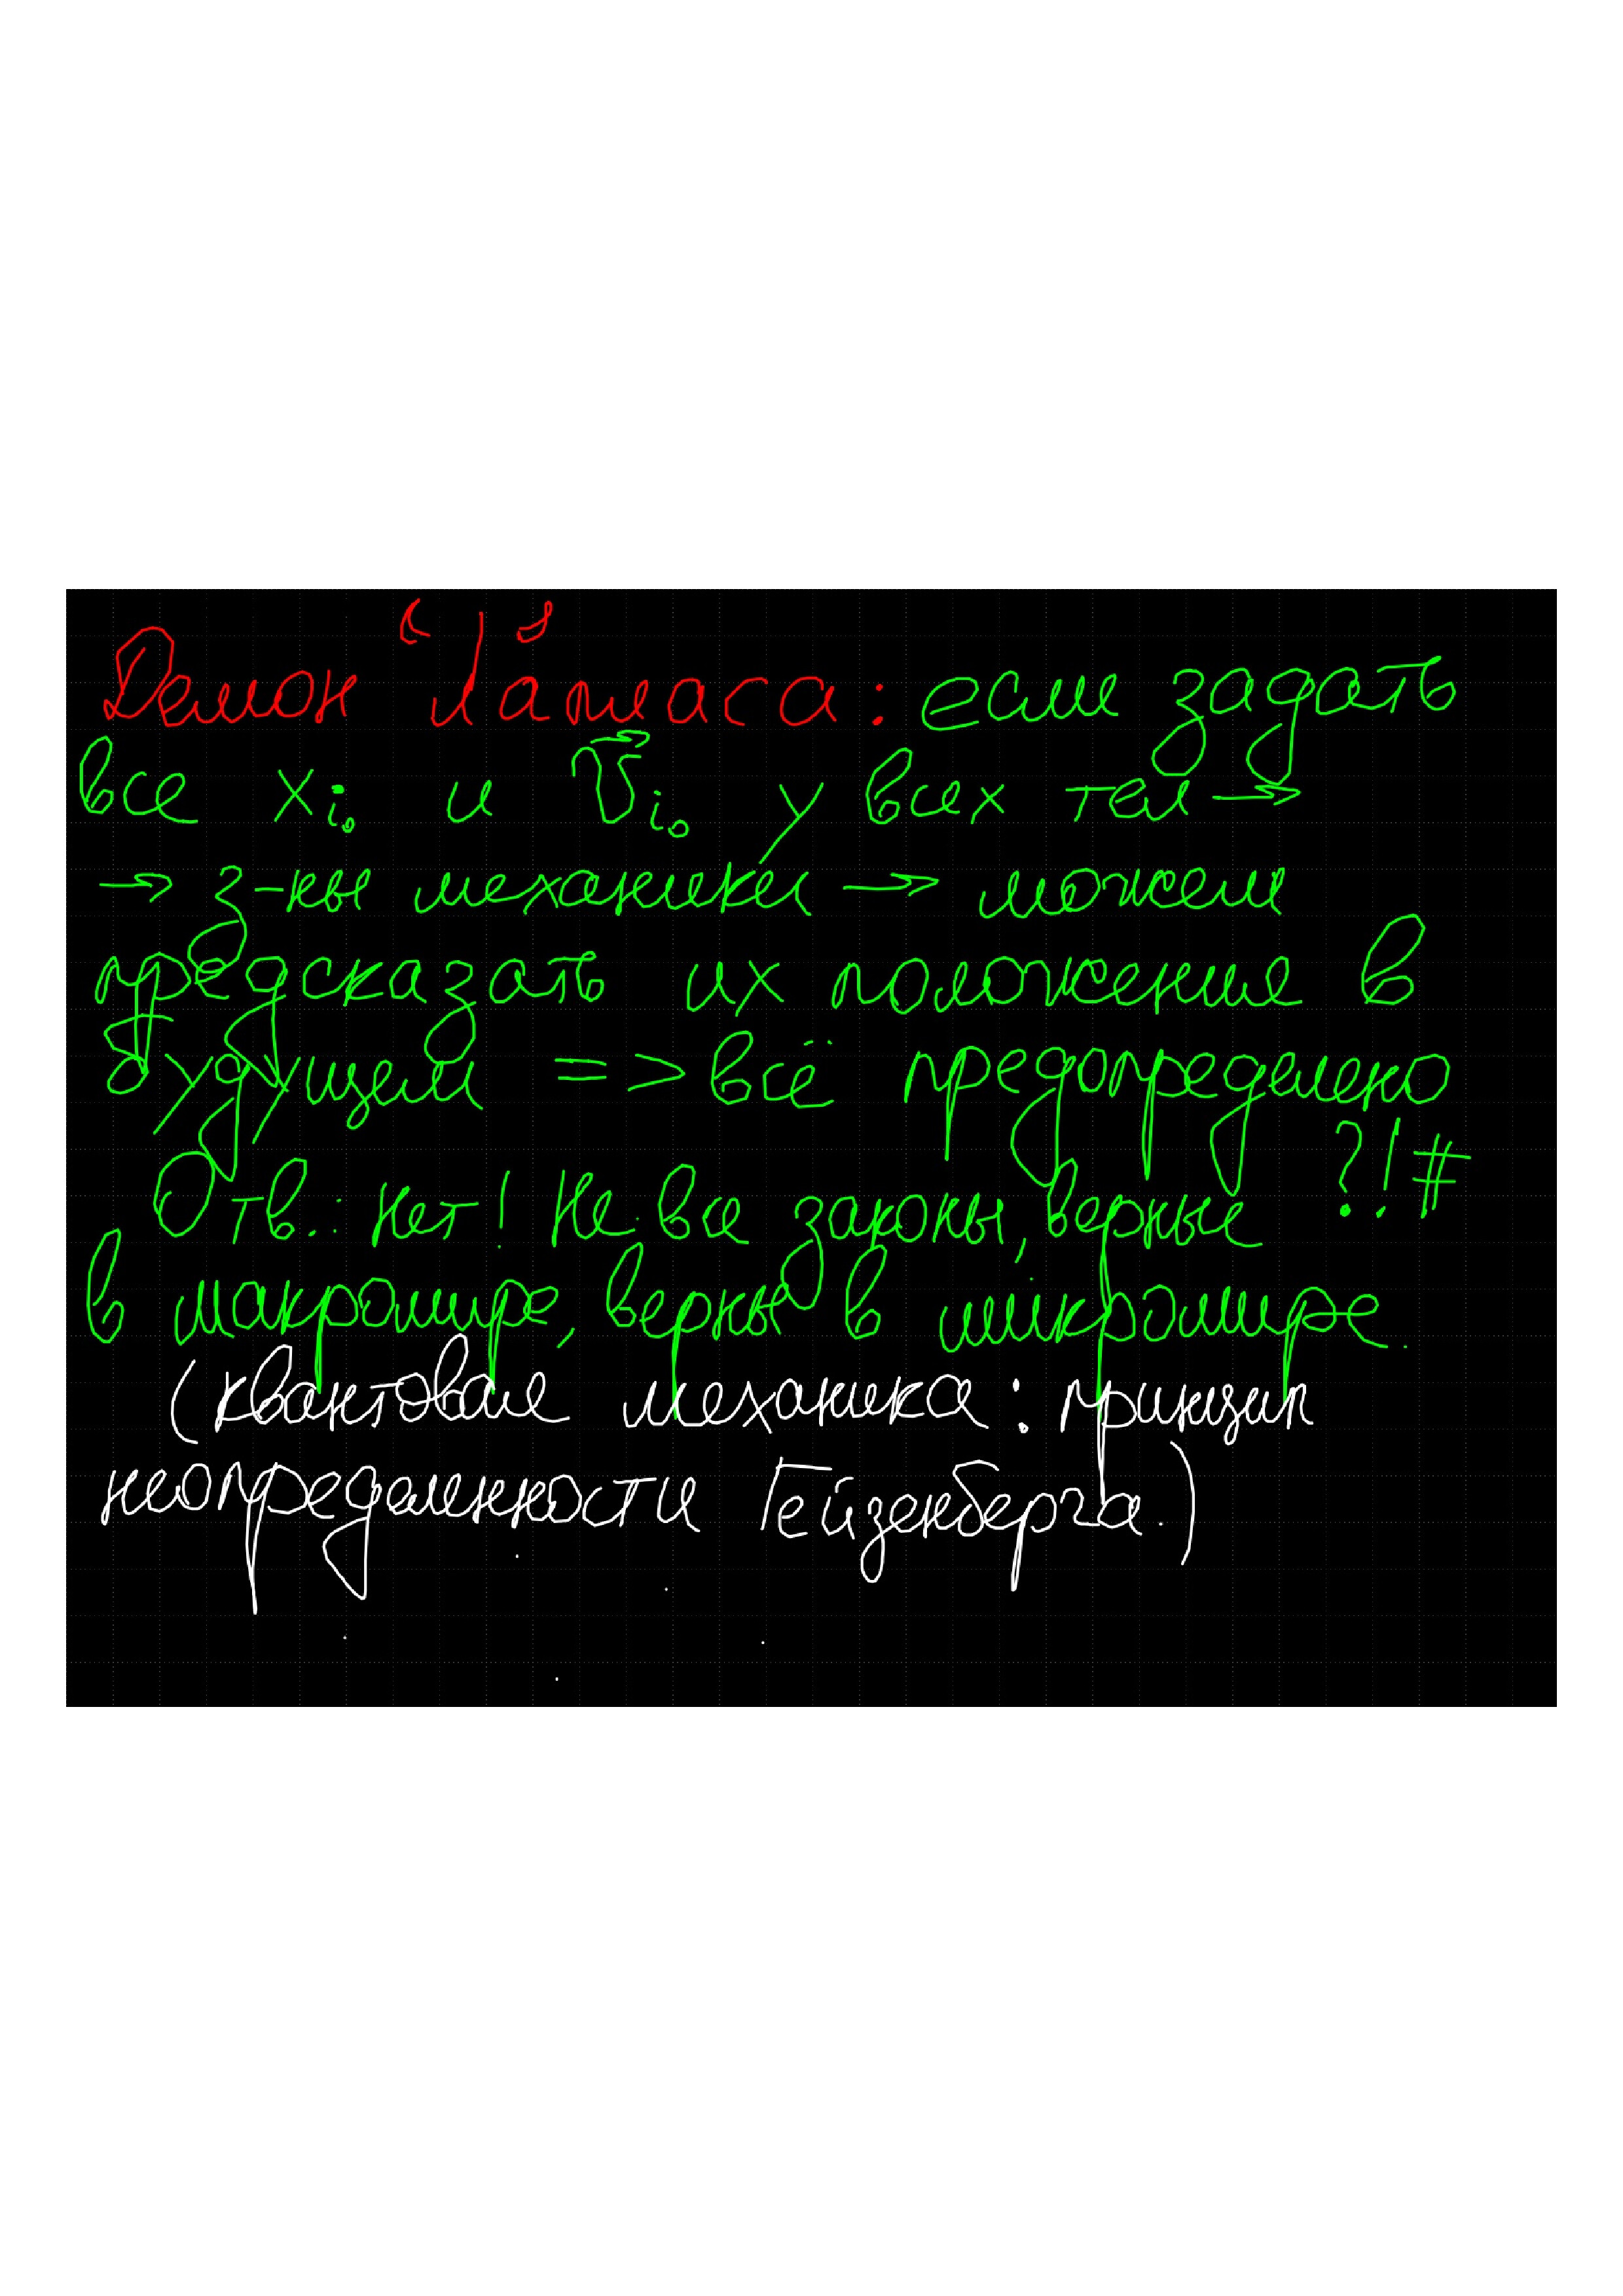 Демон Лапласа: если задать
все xi₀ и v⃗i₀ у всех тел →
→ з-ны механики → можем
предсказать их положение в
будущем => всё предопределено
?!#
Отв.: нет! Не все законы, верные
в макромире, верны в микромире.
(квантовая механика: принцип
неопределенности Гейзенберга.)